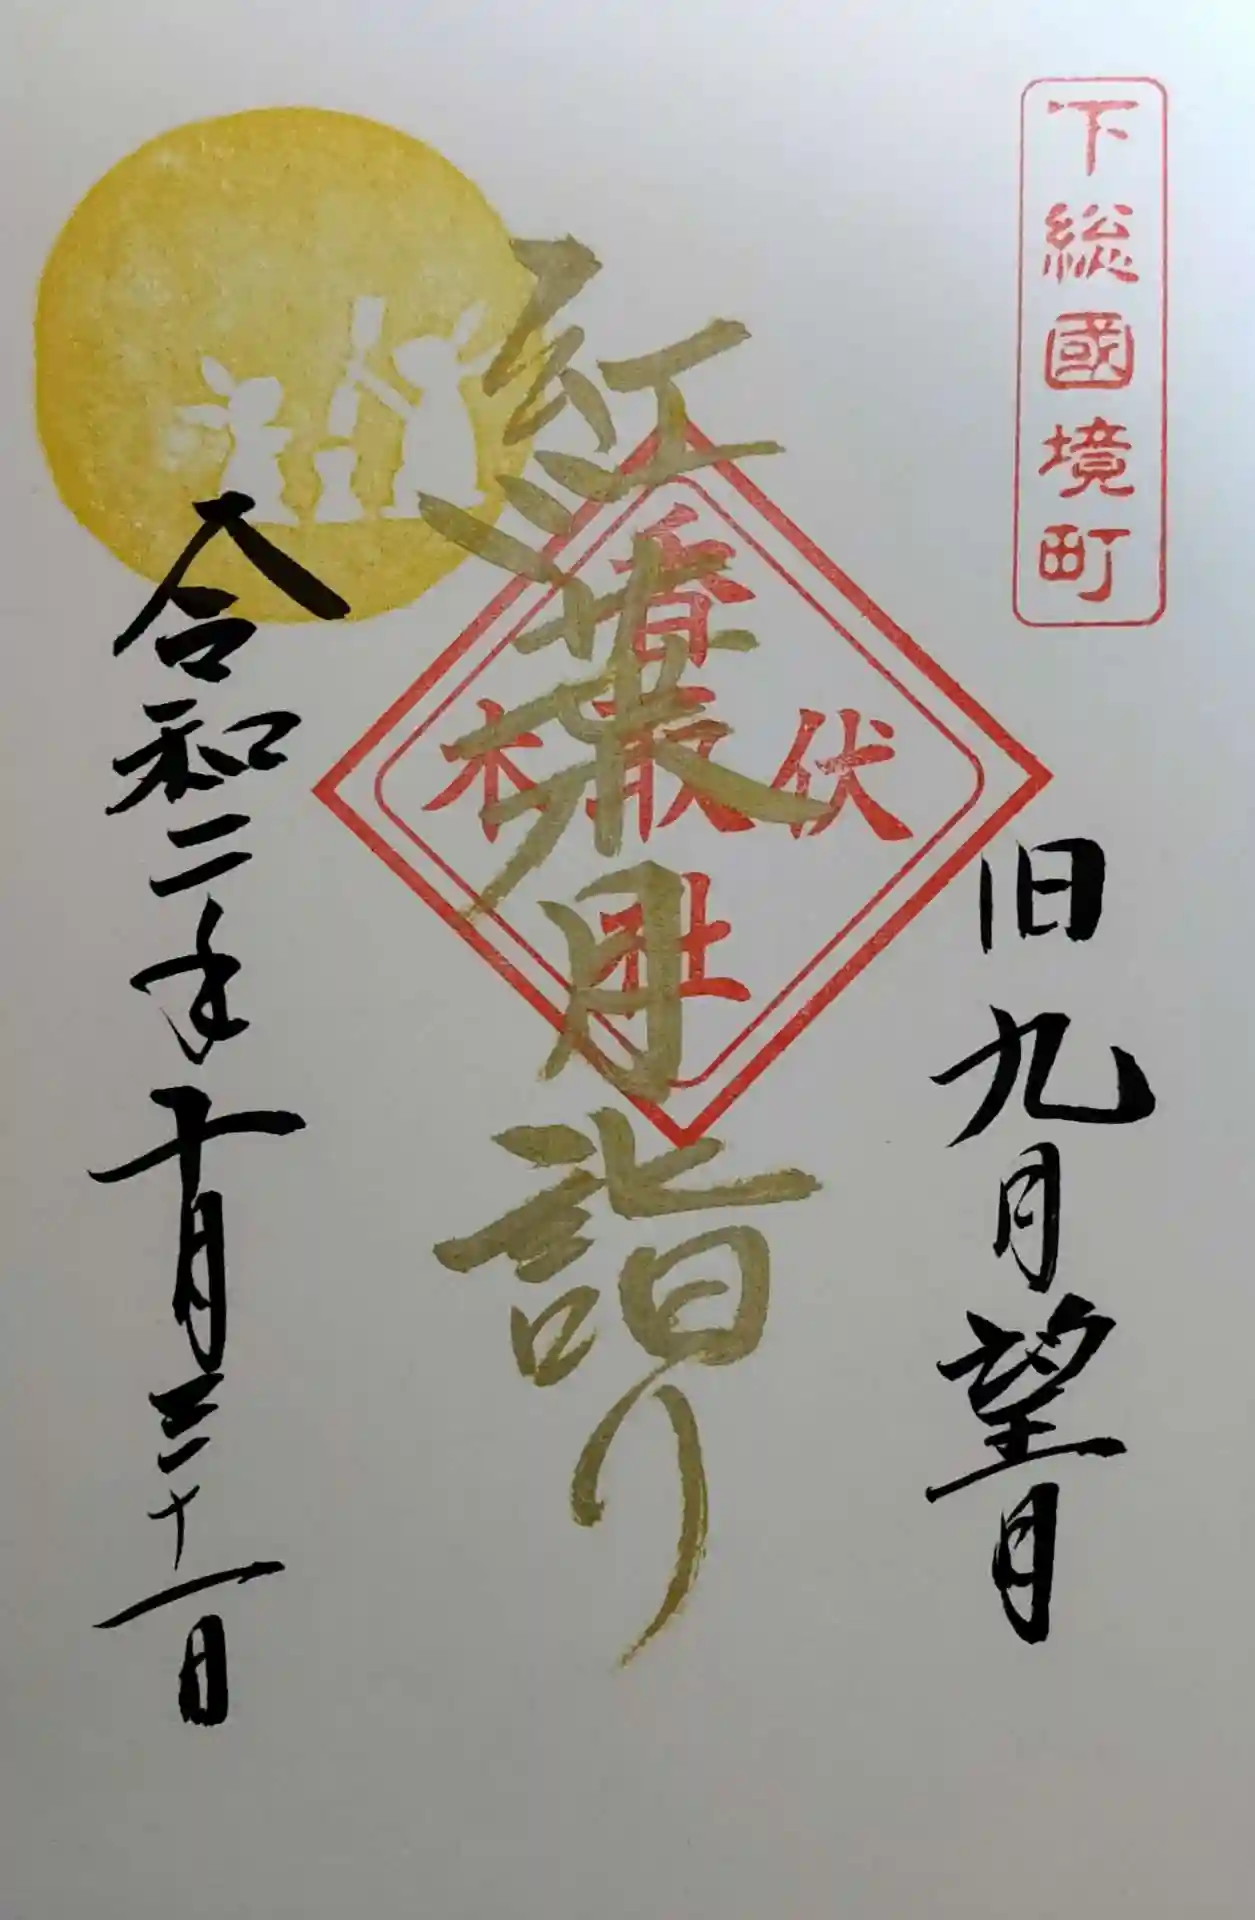 下総國境町
旧九月望月
紅葉月詣り
伏木
香取社
令和二年十月三十一日